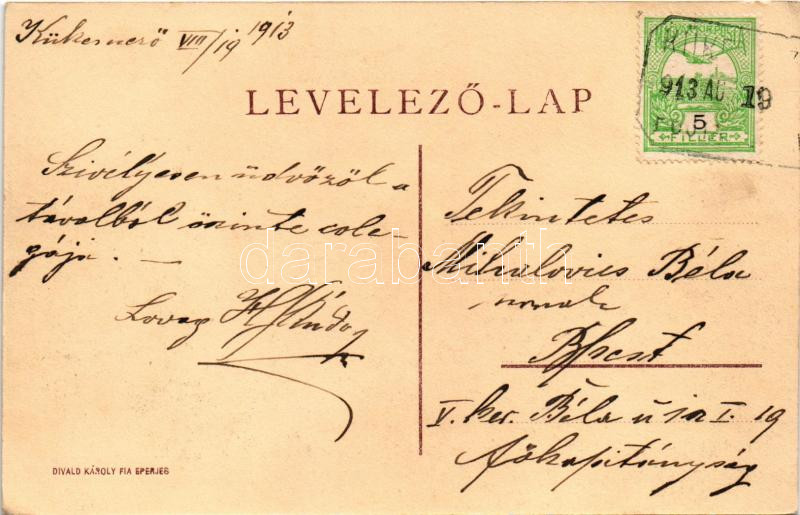 Kükemező VIII/19 1913
LEVELEZŐ-LAP
MAGYAR KIR. POSTA
913 AU 19
5
FILLÉR
Szivélyesen üdvözöl a
távolból őszinte cole-
gája. —
Lovag
Tekintetes
Mihalovics Béla
urnak
Bpest
V. ker. Béla u I. 19
főkapitányság
DIVALD KÁROLY FIA EPERJES
darabanth